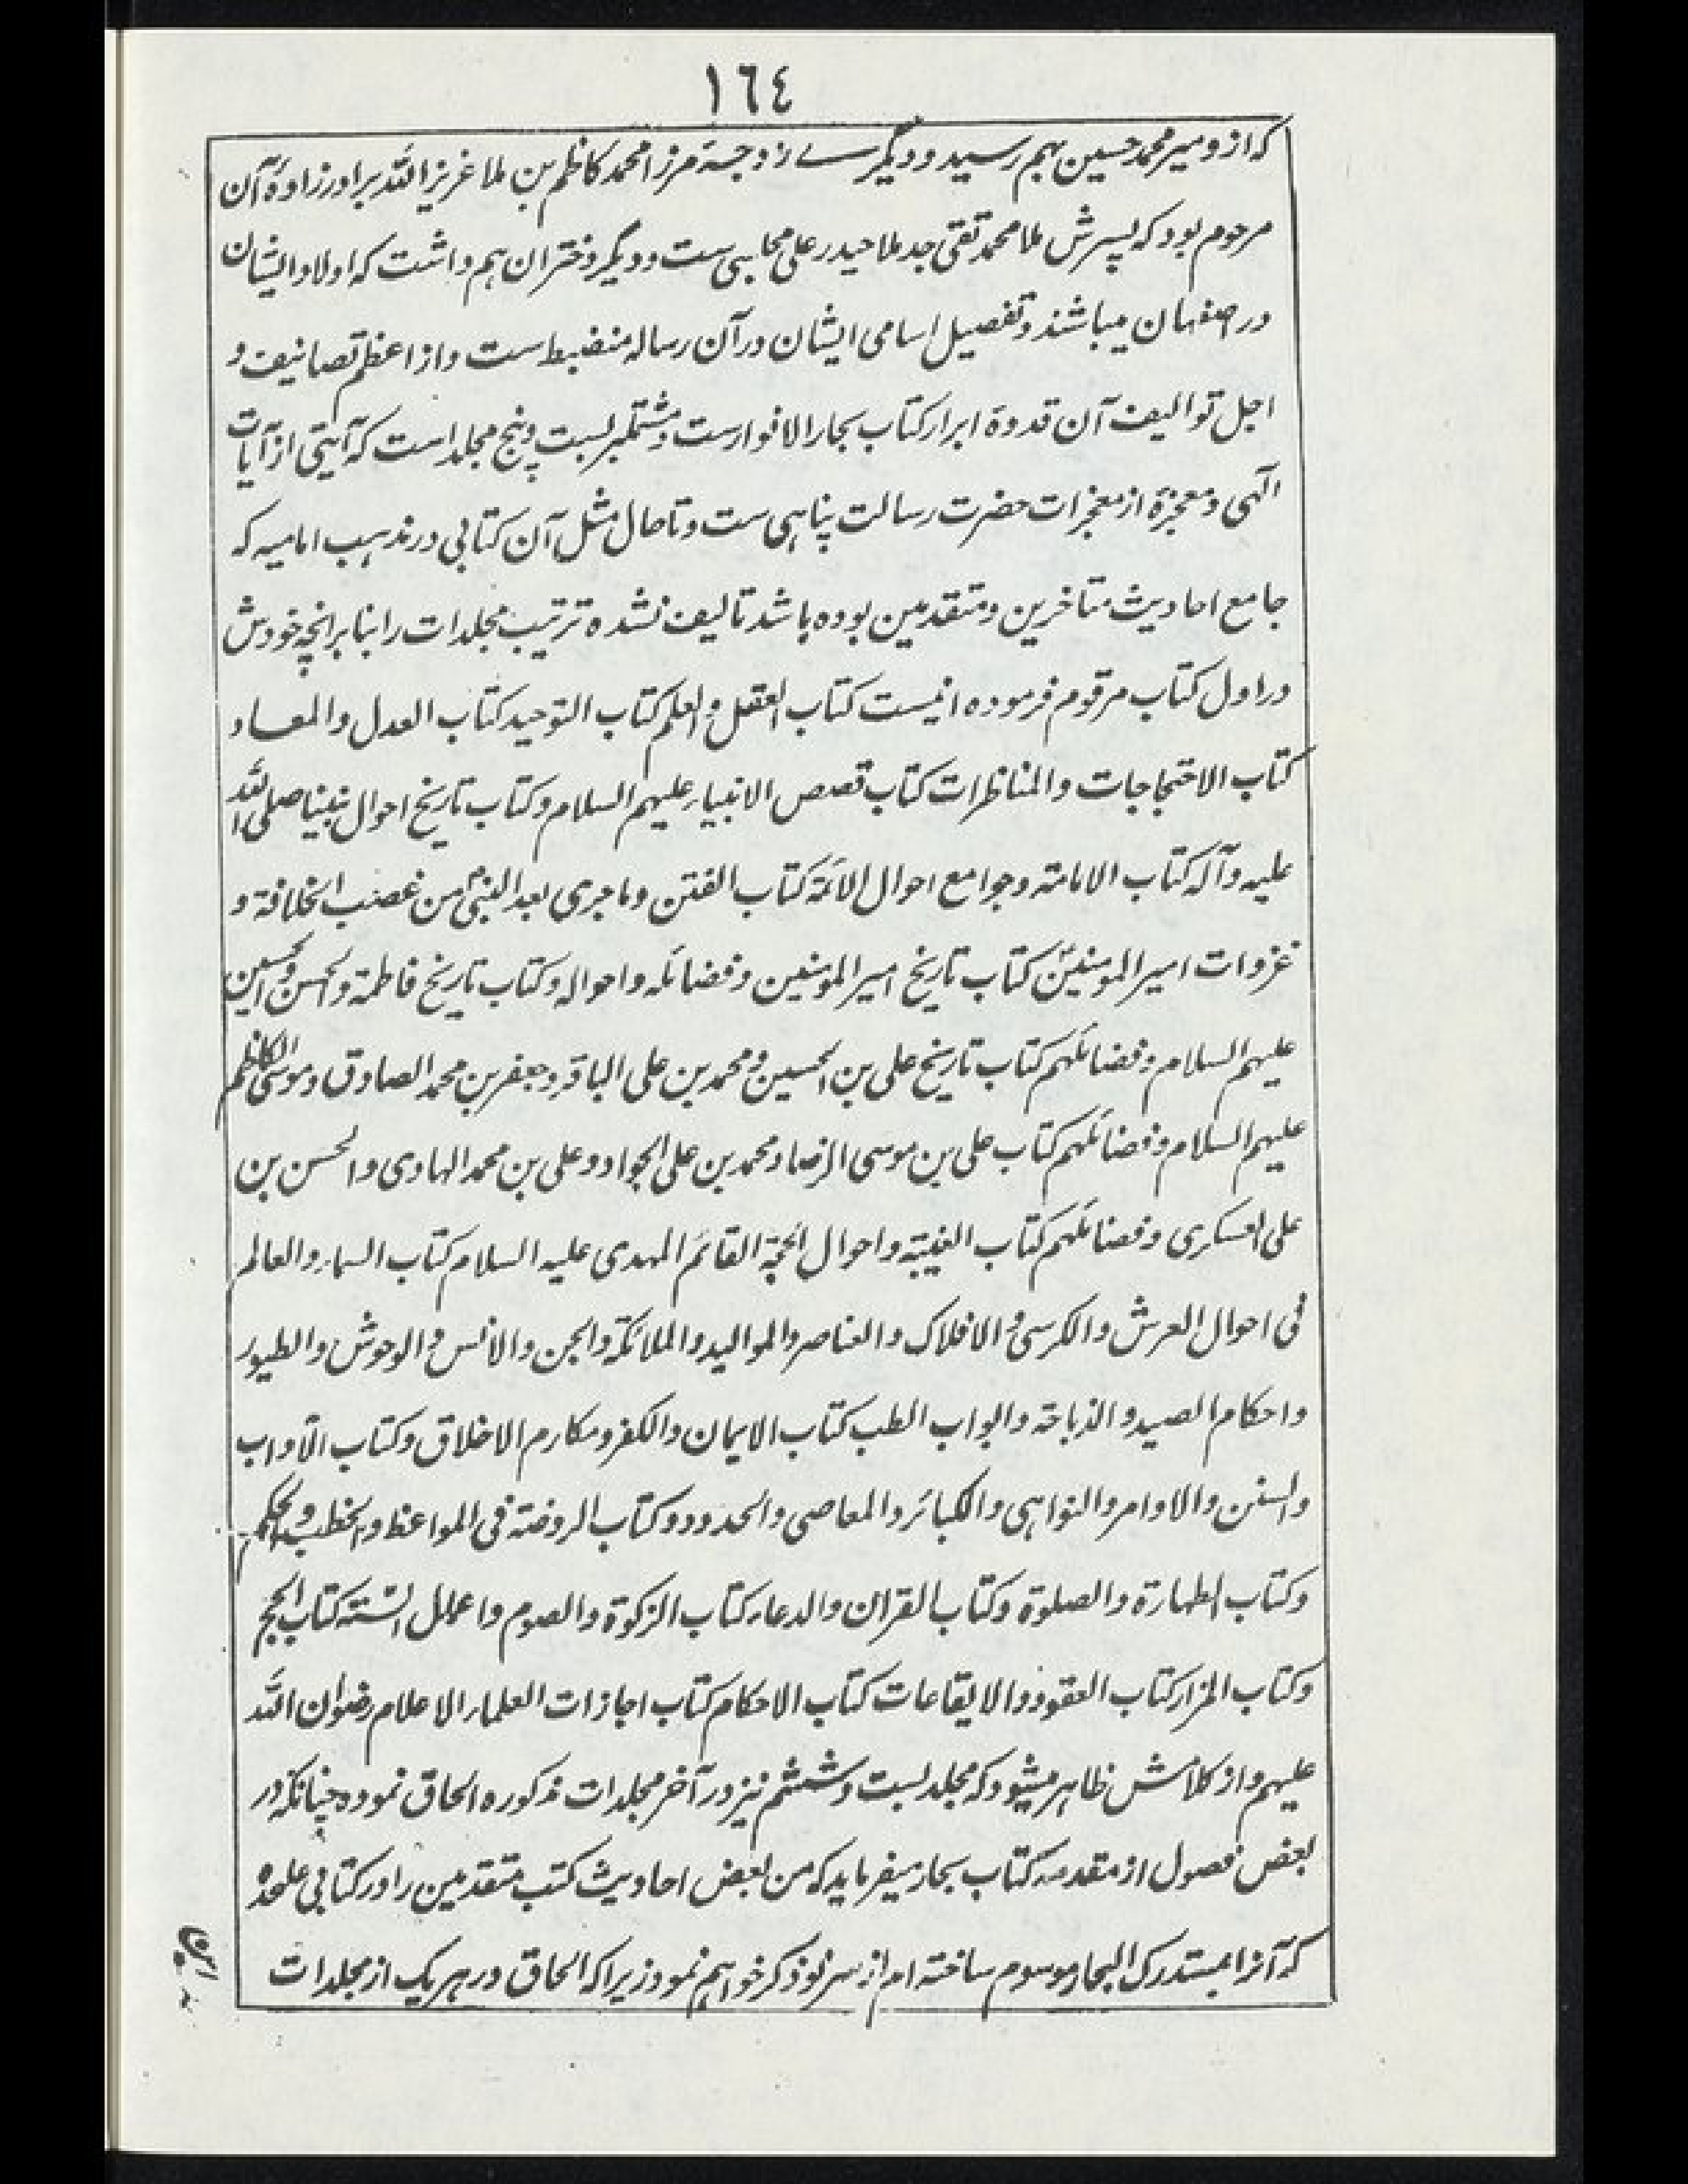 ١٦٤
که ازو میر محمد حسین بهم رسید و دیگرے زوجۀ مرزا محمد کاظم بن ملا عزیز الله برادرزاده آن
مرحوم بود که پسرش ملا محمد تقی جد ملا حیدر علی مجلسی ست و دیگر دختران هم داشت که اولاد ایشان
در اصفهان میباشند و تفصیل اسامی ایشان در آن رساله منضبط ست و از اعظم تصانیف و
اجل توالیف آن قدوۀ ابرار کتاب بحار الانوارست و مشتملبر بست و پنج مجلد است که آیتی از آیات
الهی و معجزۀ از معجزات حضرت رسالت پناهی ست و تا حال مثل آن کتابی در مذهب امامیه که
جامع احادیث متاخرین و متقدمین بوده باشد تالیف نشده ترتیب مجلدات را بنا برانچه خودش
در اول کتاب مرقوم فرموده اینست کتاب العقل و العلم کتاب التوحید کتاب العدل والمعاد
کتاب الاحتجاجات والمناظرات کتاب قصص الانبیاء علیهم السلام وکتاب تاریخ احوال نبینا صلی الله
علیه وآله کتاب الامامة وجوامع احوال الائمة کتاب الفتن وماجری بعد النبی من غصب الخلافة و
غزوات امیر المومنین کتاب تاریخ امیر المومنین وفضائله واحواله وکتاب تاریخ فاطمة والحسن والحسین
علیهم السلام وفضائلهم کتاب تاریخ علی بن الحسین ومحمد بن علی الباقر وجعفر بن محمد الصادق وموسی الکاظم
علیهم السلام وفضائلهم کتاب علی بن موسی الرضا ومحمد بن علی الجواد وعلی بن محمد الهادی والحسن بن
علی العسکری وفضائلهم کتاب الغیبة واحوال الحجة القائم المهدی علیه السلام کتاب السماء والعالم
فی احوال العرش والکرسی والافلاک والعناصر والموالید والملائکة والجن والانس والوحوش والطیور
واحکام الصید والذباحة وابواب الطب کتاب الایمان والکفر ومکارم الاخلاق وکتاب الآداب
والسنن والاوامر والنواهی والکبائر والمعاصی والحدود وکتاب الروضة فی المواعظ والخطب والحکم
وکتاب الطهارة والصلوة وکتاب القرآن والدعاء کتاب الزکوة والصوم واعمال السنة کتاب الحج
وکتاب المزار کتاب العقود والایقاعات کتاب الاحکام کتاب اجازات العلماء الاعلام رضوان الله
علیهم و از کلامش ظاهر میشود که مجلد بست و ششم نیز در آخر مجلدات مذکوره الحاق نموده چنانکه در
بعض فصول از مقدمه کتاب بحار میفرماید که من بعض احادیث کتب متقدمین را در کتابی علحده
که آنرا بمستدرک البحار موسوم ساخته ام از سر نو ذکر خواهم نمود زیرا که الحاق در هر یک از مجلدات